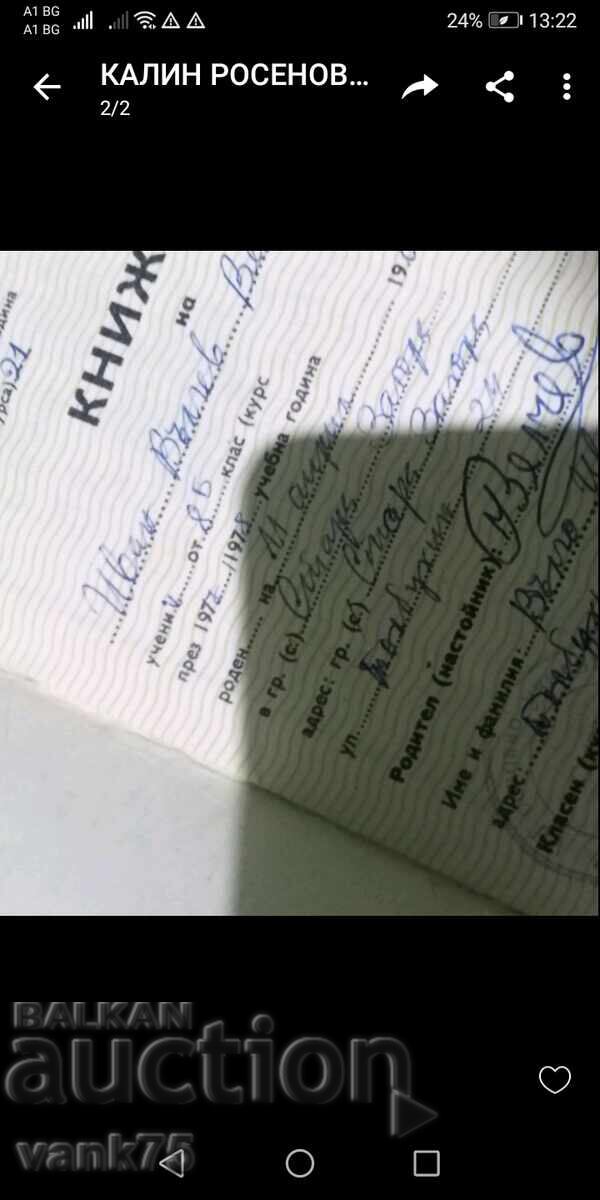 A1 BG
A1 BG
24% 13:22
КАЛИН РОСЕНОВ...
2/2
КНИЖ
на
Иван Вълчев В
учени к от 8 Б клас (курс
през 197 /1978 учебна година
роден на 11 април 19
в гр. (с) Стара Загора
адрес: гр. (с) Стара Загора
ул. Толбухин 24
Родител (настойник):
Име и фамилия: Вълчо
адрес: Толбух
Класен (к
рса) 21
BALKAN
auction
vank75